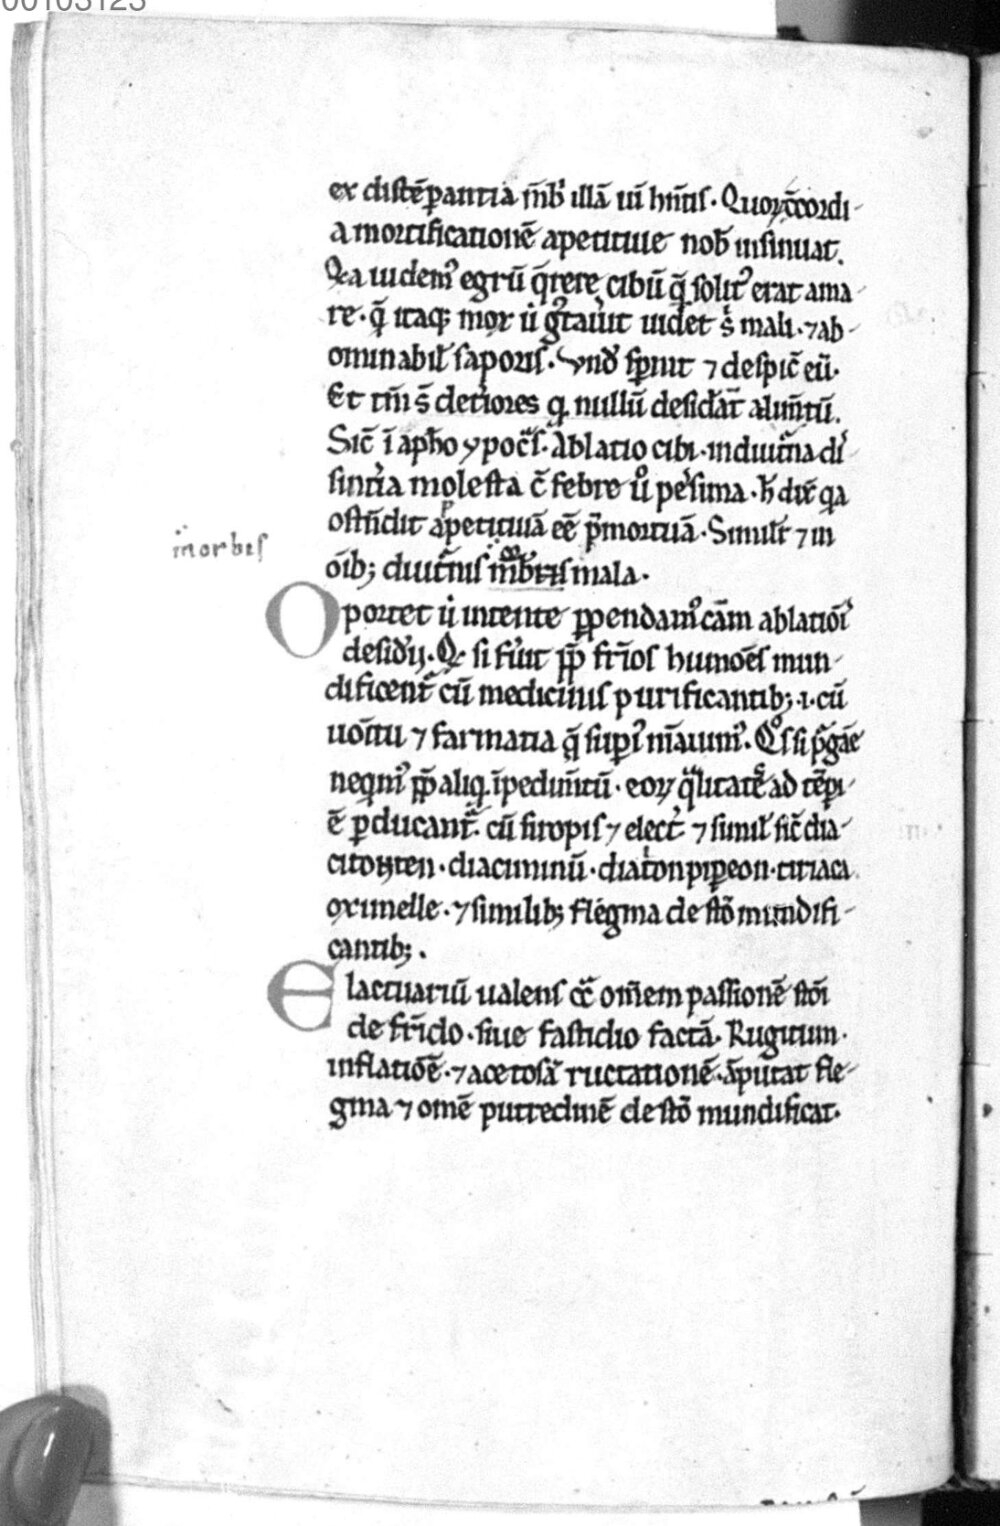 00103123
ex distēꝑantia m̄b᷒ illā uī hn̄tiſ. Quoꝝ ꝯcordi-
a mortificationē apetitiue nob̄ inſinuat.
Q̄a uidem᷒ egrū q̄rere cibū q̄ ſolit᷒ erat ama-
re. q̄ itaqꝫ mor
uidet
mali. ⁊ ab-
ominabil̄ ſaporiſ. Vnđ ſꝑnit ⁊ deſpic̄ eū.
Et tn̄ ſ̄ deteriores q nullū deſid̄at alim̄tū.
Sic̄ ī aph̓o ypoc̄ſ. Ablatio cibi. in diuit̄na diſ-
ſint̓ia moleſta ē febre ů peſſima. h̄ dix̄ qa
oſtn̄dit apetitiuā eē p̄mortuā. Simil̄r ⁊ in
ōib; diut̄niſ m̄b̄riſ mala.
morbiſ
Oportet ů intente ꝑpendam᷒ cām ablatiōi᷒
deſid̓ij. Q̄ ſi fůit ꝓp̄ fr̄ioſ humōeſ mun-
dificent̄ cū mediciniſ purificantib; .i. cū
uōitu ⁊ farmatia q̄ ſuꝑi᷒ nōauim᷒. Qͦſ ſi p̄gāe
neqm᷒ ꝓp̄ aliq īpedim̄tū. eoꝝ q̄litatē ad tēꝑi-
ē ꝑducant̄. cū ſiropiſ ⁊ elect᷒ ⁊ ſimil̄ ſic̄ dia-
citoniten. diaciminū. diat̓on piꝑeon. tiriaca
oximelle. ⁊ ſimilib; flegma de ſtō mundifi-
cantib;.
Elactuariū ualenſ ꝯ̄ om̄em paſſionē ſtōi
de fr̄ido. ſiue faſtidio factā. Rugitum.
inflatiōē. ⁊ acetoſā ructationē. āputat fle-
gma ⁊ omē putredinē de ſtō mundificat.